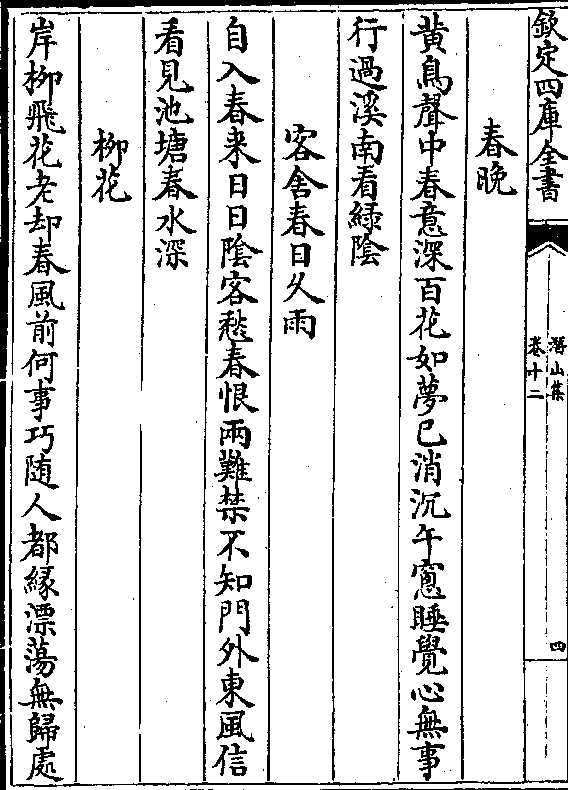 欽定四庫全書
潛山集
卷十二
四
春晚
黄鳥聲中春意深百花如夢已消沉午窻睡覺心無事
行過溪南看緑隂
客舍春日久雨
自入春来日日隂客愁春恨雨難禁不知門外東風信
看見池塘春水深
柳花
岸柳飛花老却春風前何事巧随人都縁漂蕩無歸處